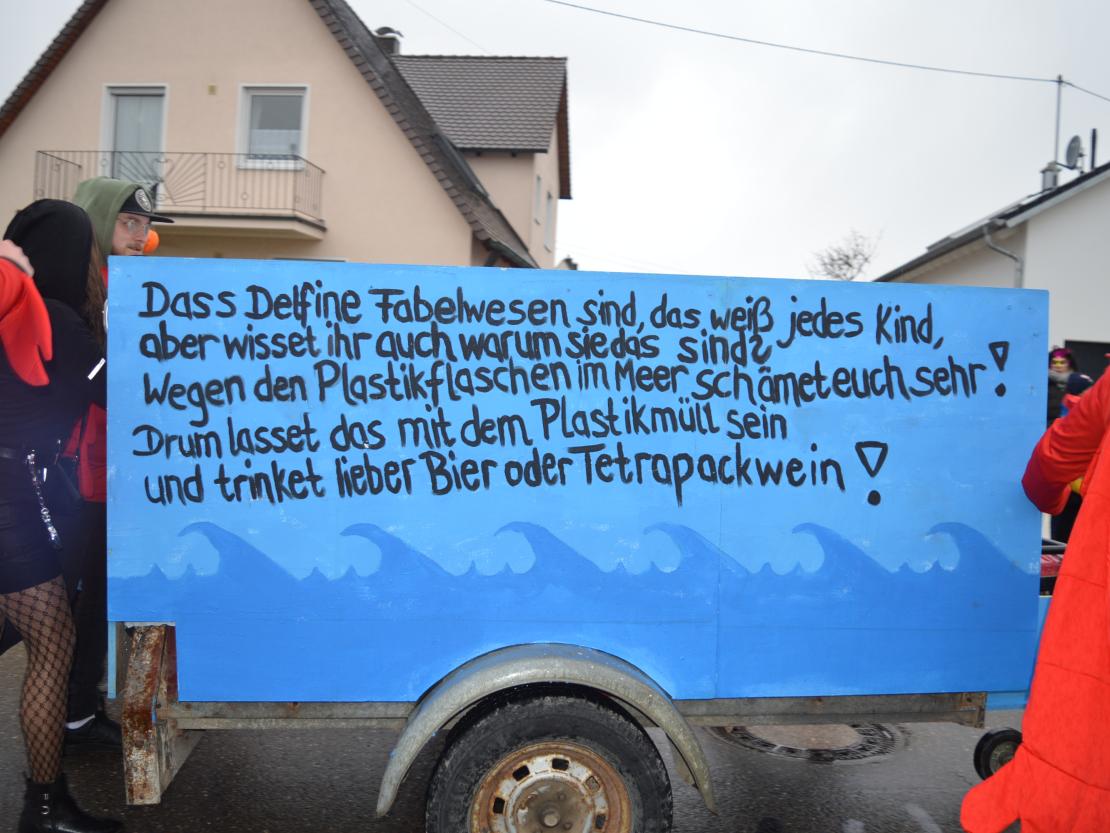 Dass Delfine Fabelwesen sind, das weiß jedes Kind,
aber wisset ihr auch warum sie das sind?
Wegen den Plastikflaschen im Meer schämet euch sehr!
Drum lasset das mit dem Plastikmüll sein
und trinket lieber Bier oder Tetrapackwein!